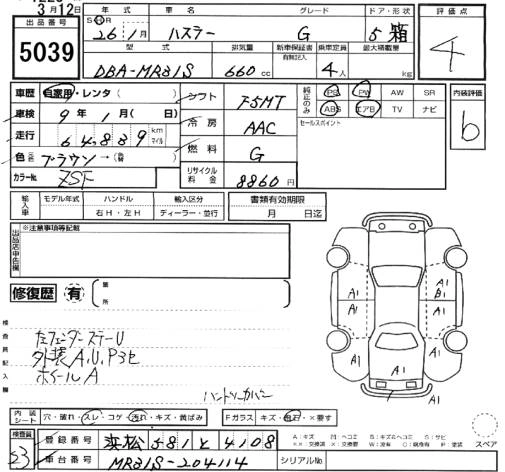 3月12日
出品番号
5039
年式 車名 グレード ドア・形状
S H R 26年1月 ハスラー G 5 箱
型式 排気量 新車保証書 有無記入 乗車定員 最大積載量
DBA-MR31S 660 cc 4人 kg
評価点
4
車歴 自家用・レンタ( )
車検 9年1月( 日)
走行 64,889 km マイル
色 ブラウン→
カラーNo. ZSF
シフト F5MT
冷房 AAC
燃料 G
リサイクル料金 8860円
純正のみ PS PW AW SR
ABS エアB TV ナビ
セールスポイント
内装評価
b
輸入車 モデル年式 ハンドル 輸入区分
右H・左H ディーラー・並行
書類有効期限
月 日迄
出品店申告欄
※注意事項等記載
修復歴 有 箇所
検査員記入欄
左フェンダーステーU
外装A,U,Pヨセ
ホイールA
ハンドソーカバー
A1 A1 A1 B1 A1 A1 A1 A1
内装シート 穴・破れ・スレ・コゲ・汚れ・キズ・黄ばみ
Fガラス キズ・飛石・×要す
検査員
53
登録番号 浜松 581 と 4108
車台番号 MR31S-204114
シリアルNo.
A:キズ U:ヘコミ B:キズ&ヘコミ S:サビ
スペア